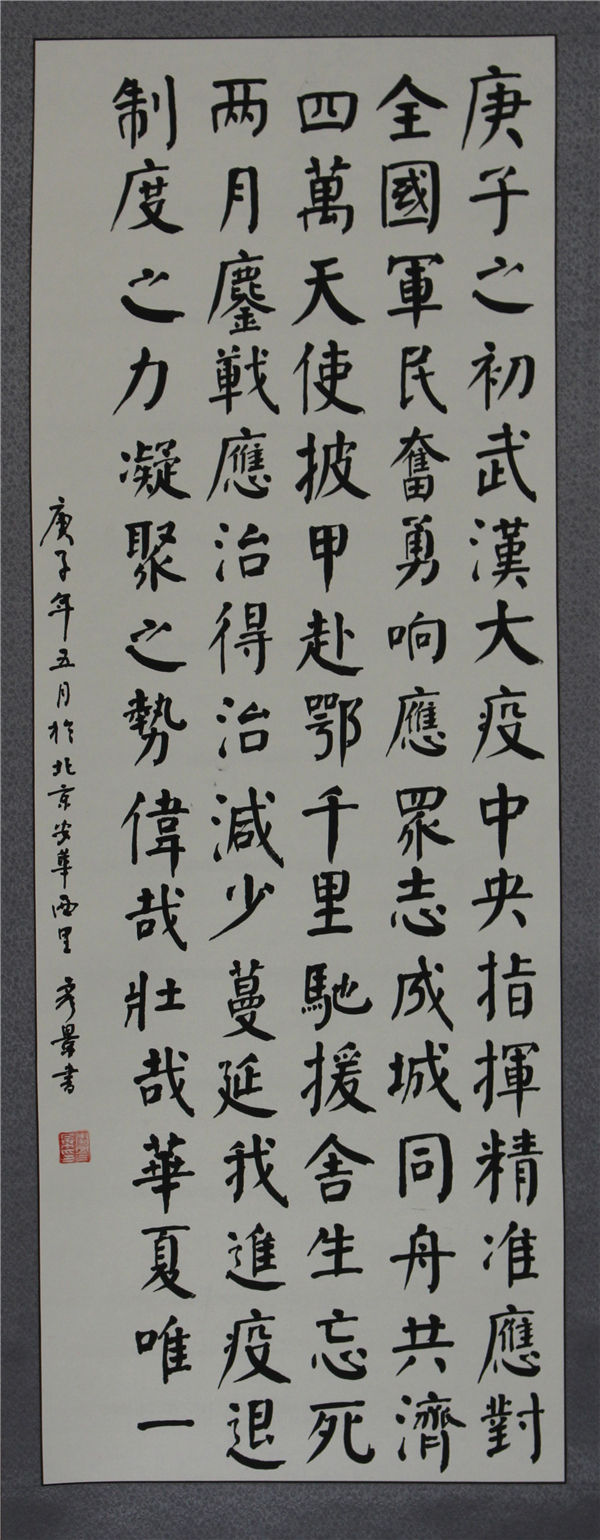 庚子之初武漢大疫中央指揮精准應對
全國軍民奮勇响應眾志成城同舟共濟
四萬天使披甲赴鄂千里馳援舍生忘死
两月鏖戰應治得治減少蔓延我進疫退
制度之力凝聚之勢偉哉壯哉華夏唯一
庚子年五月於北京安華西里 書